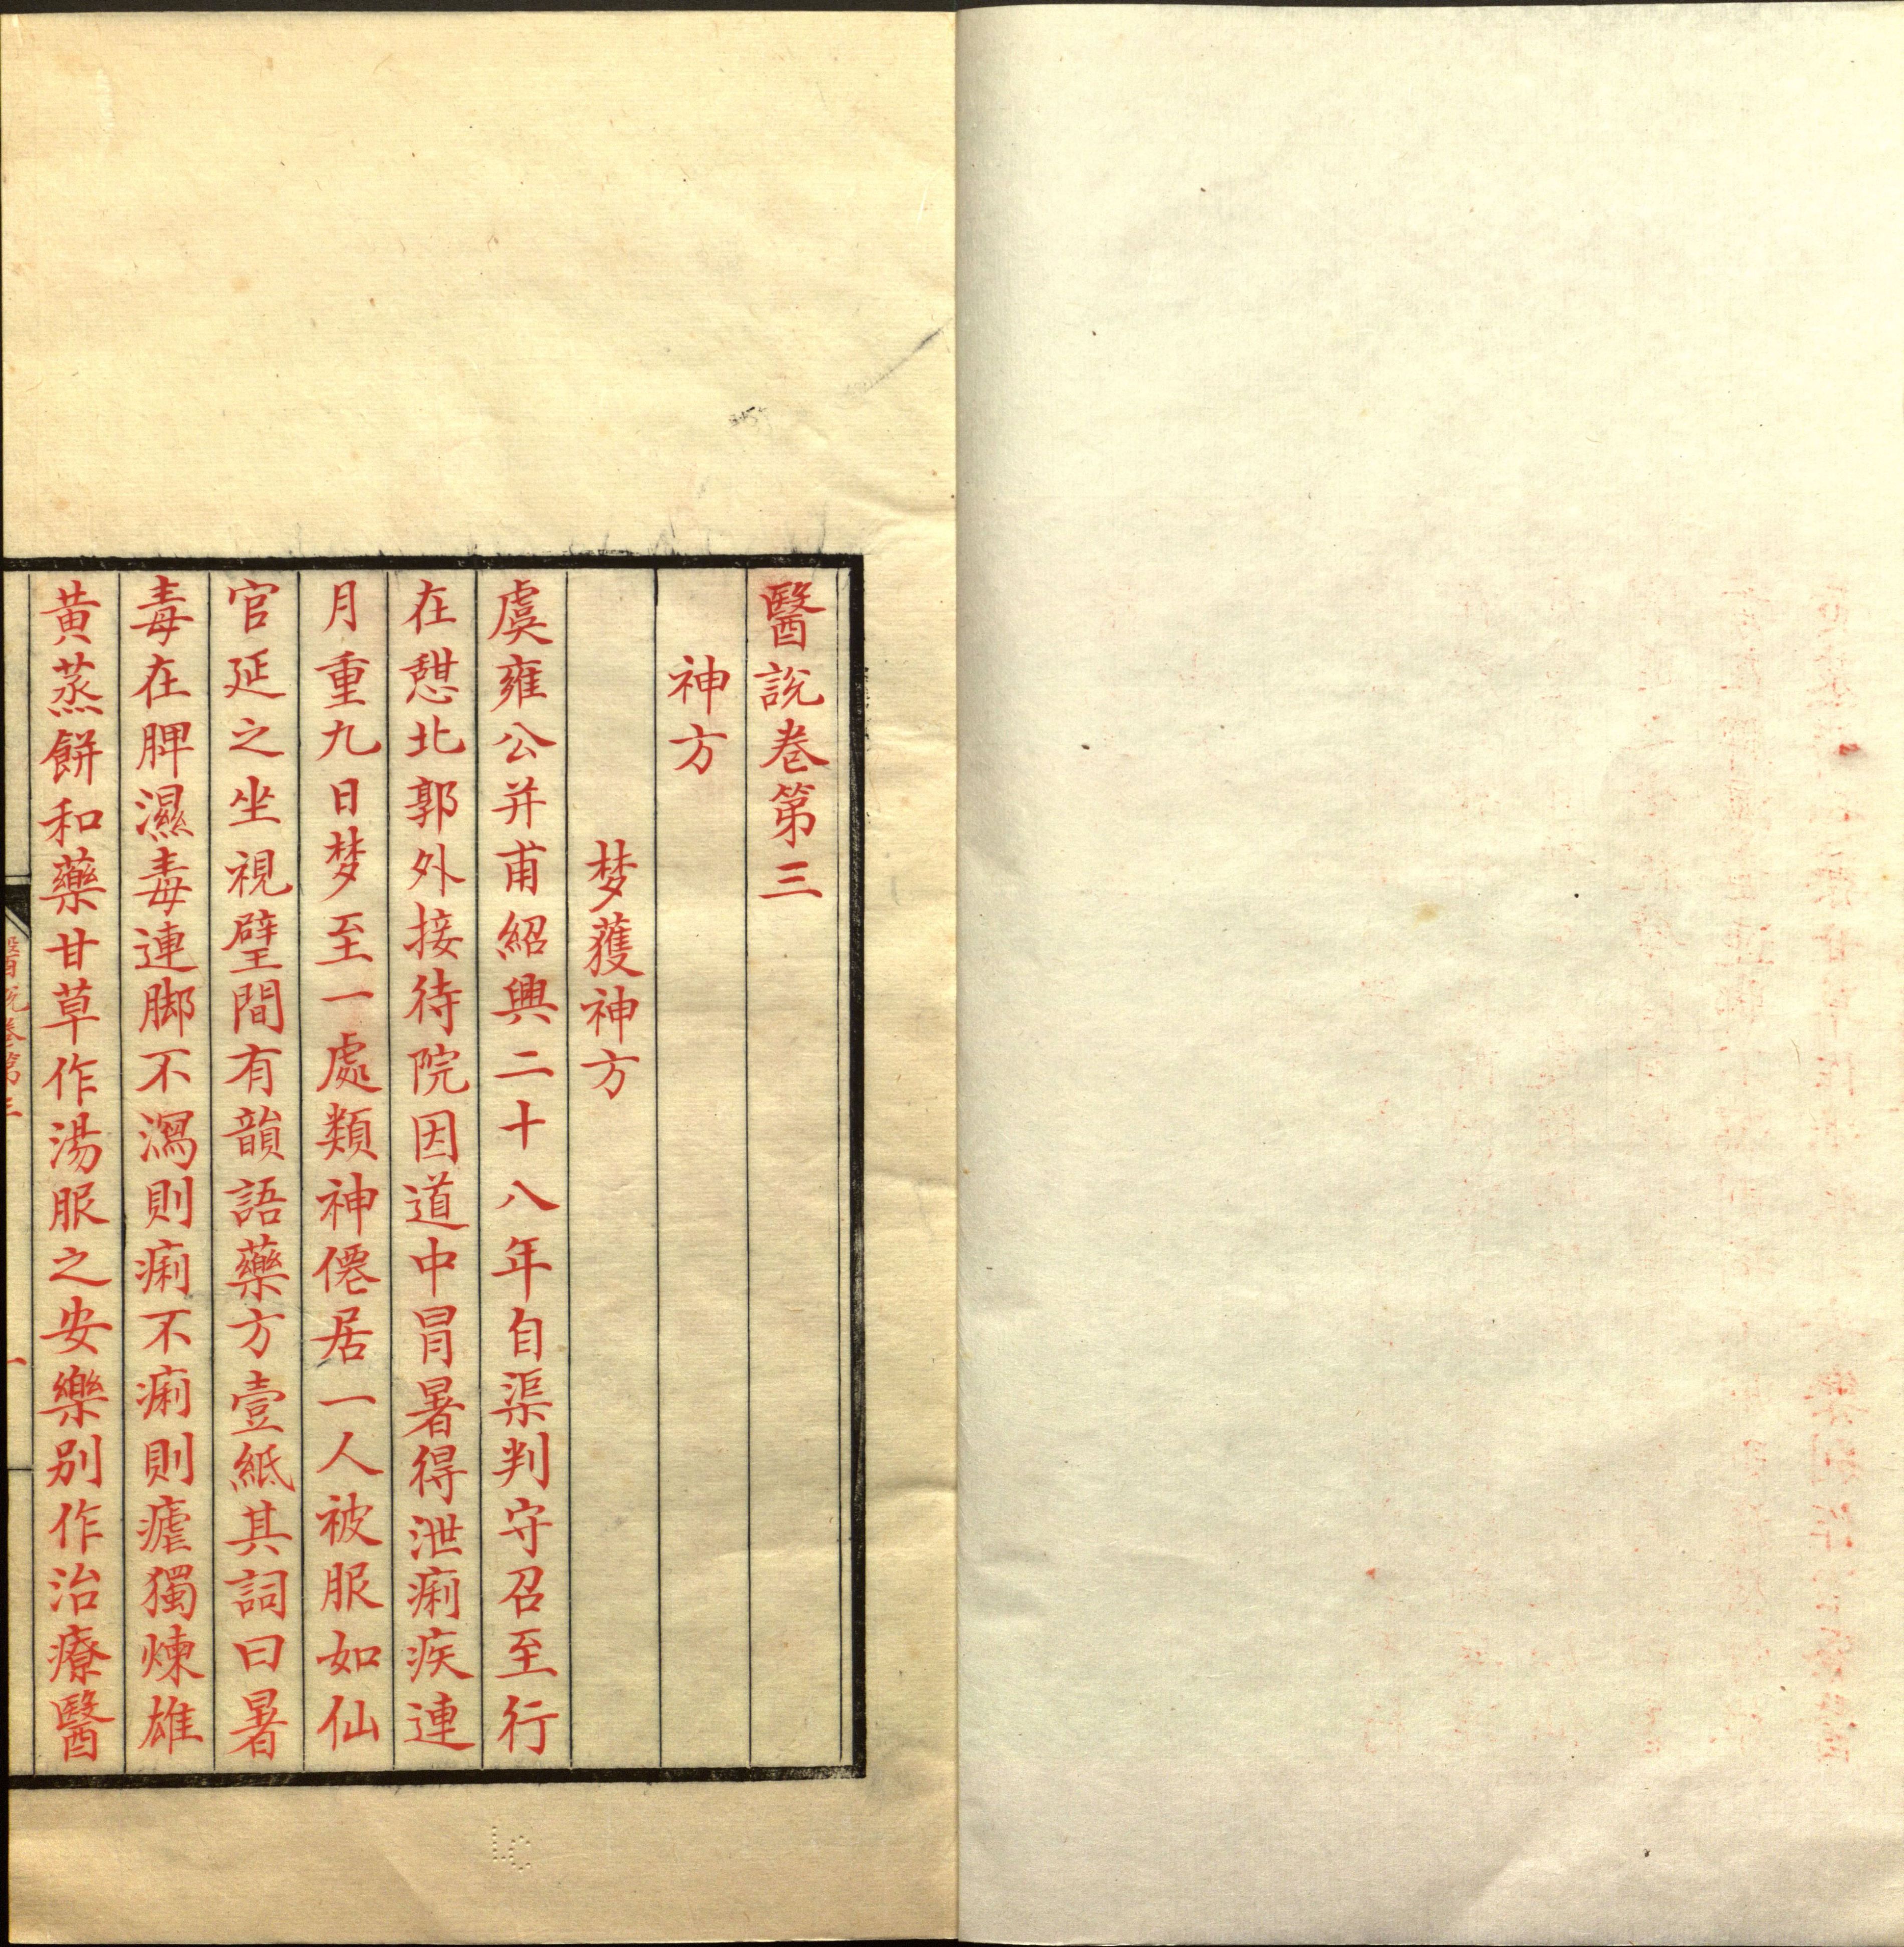 醫說卷第三
神方
梦獲神方
虞雍公并甫紹興二十八年自渠判守召至行
在憇北郭外接待院因道中冐暑得泄痢疾連
月重九日梦至一處類神僊居一人被服如仙
官延之坐視壁間有韻語藥方壹紙其詞曰暑
毒在脾濕毒連脚不瀉則痢不痢則瘧獨煉雄
黄蒸餅和藥甘草作湯服之安樂别作治療醫
醫說卷第三
一
LC